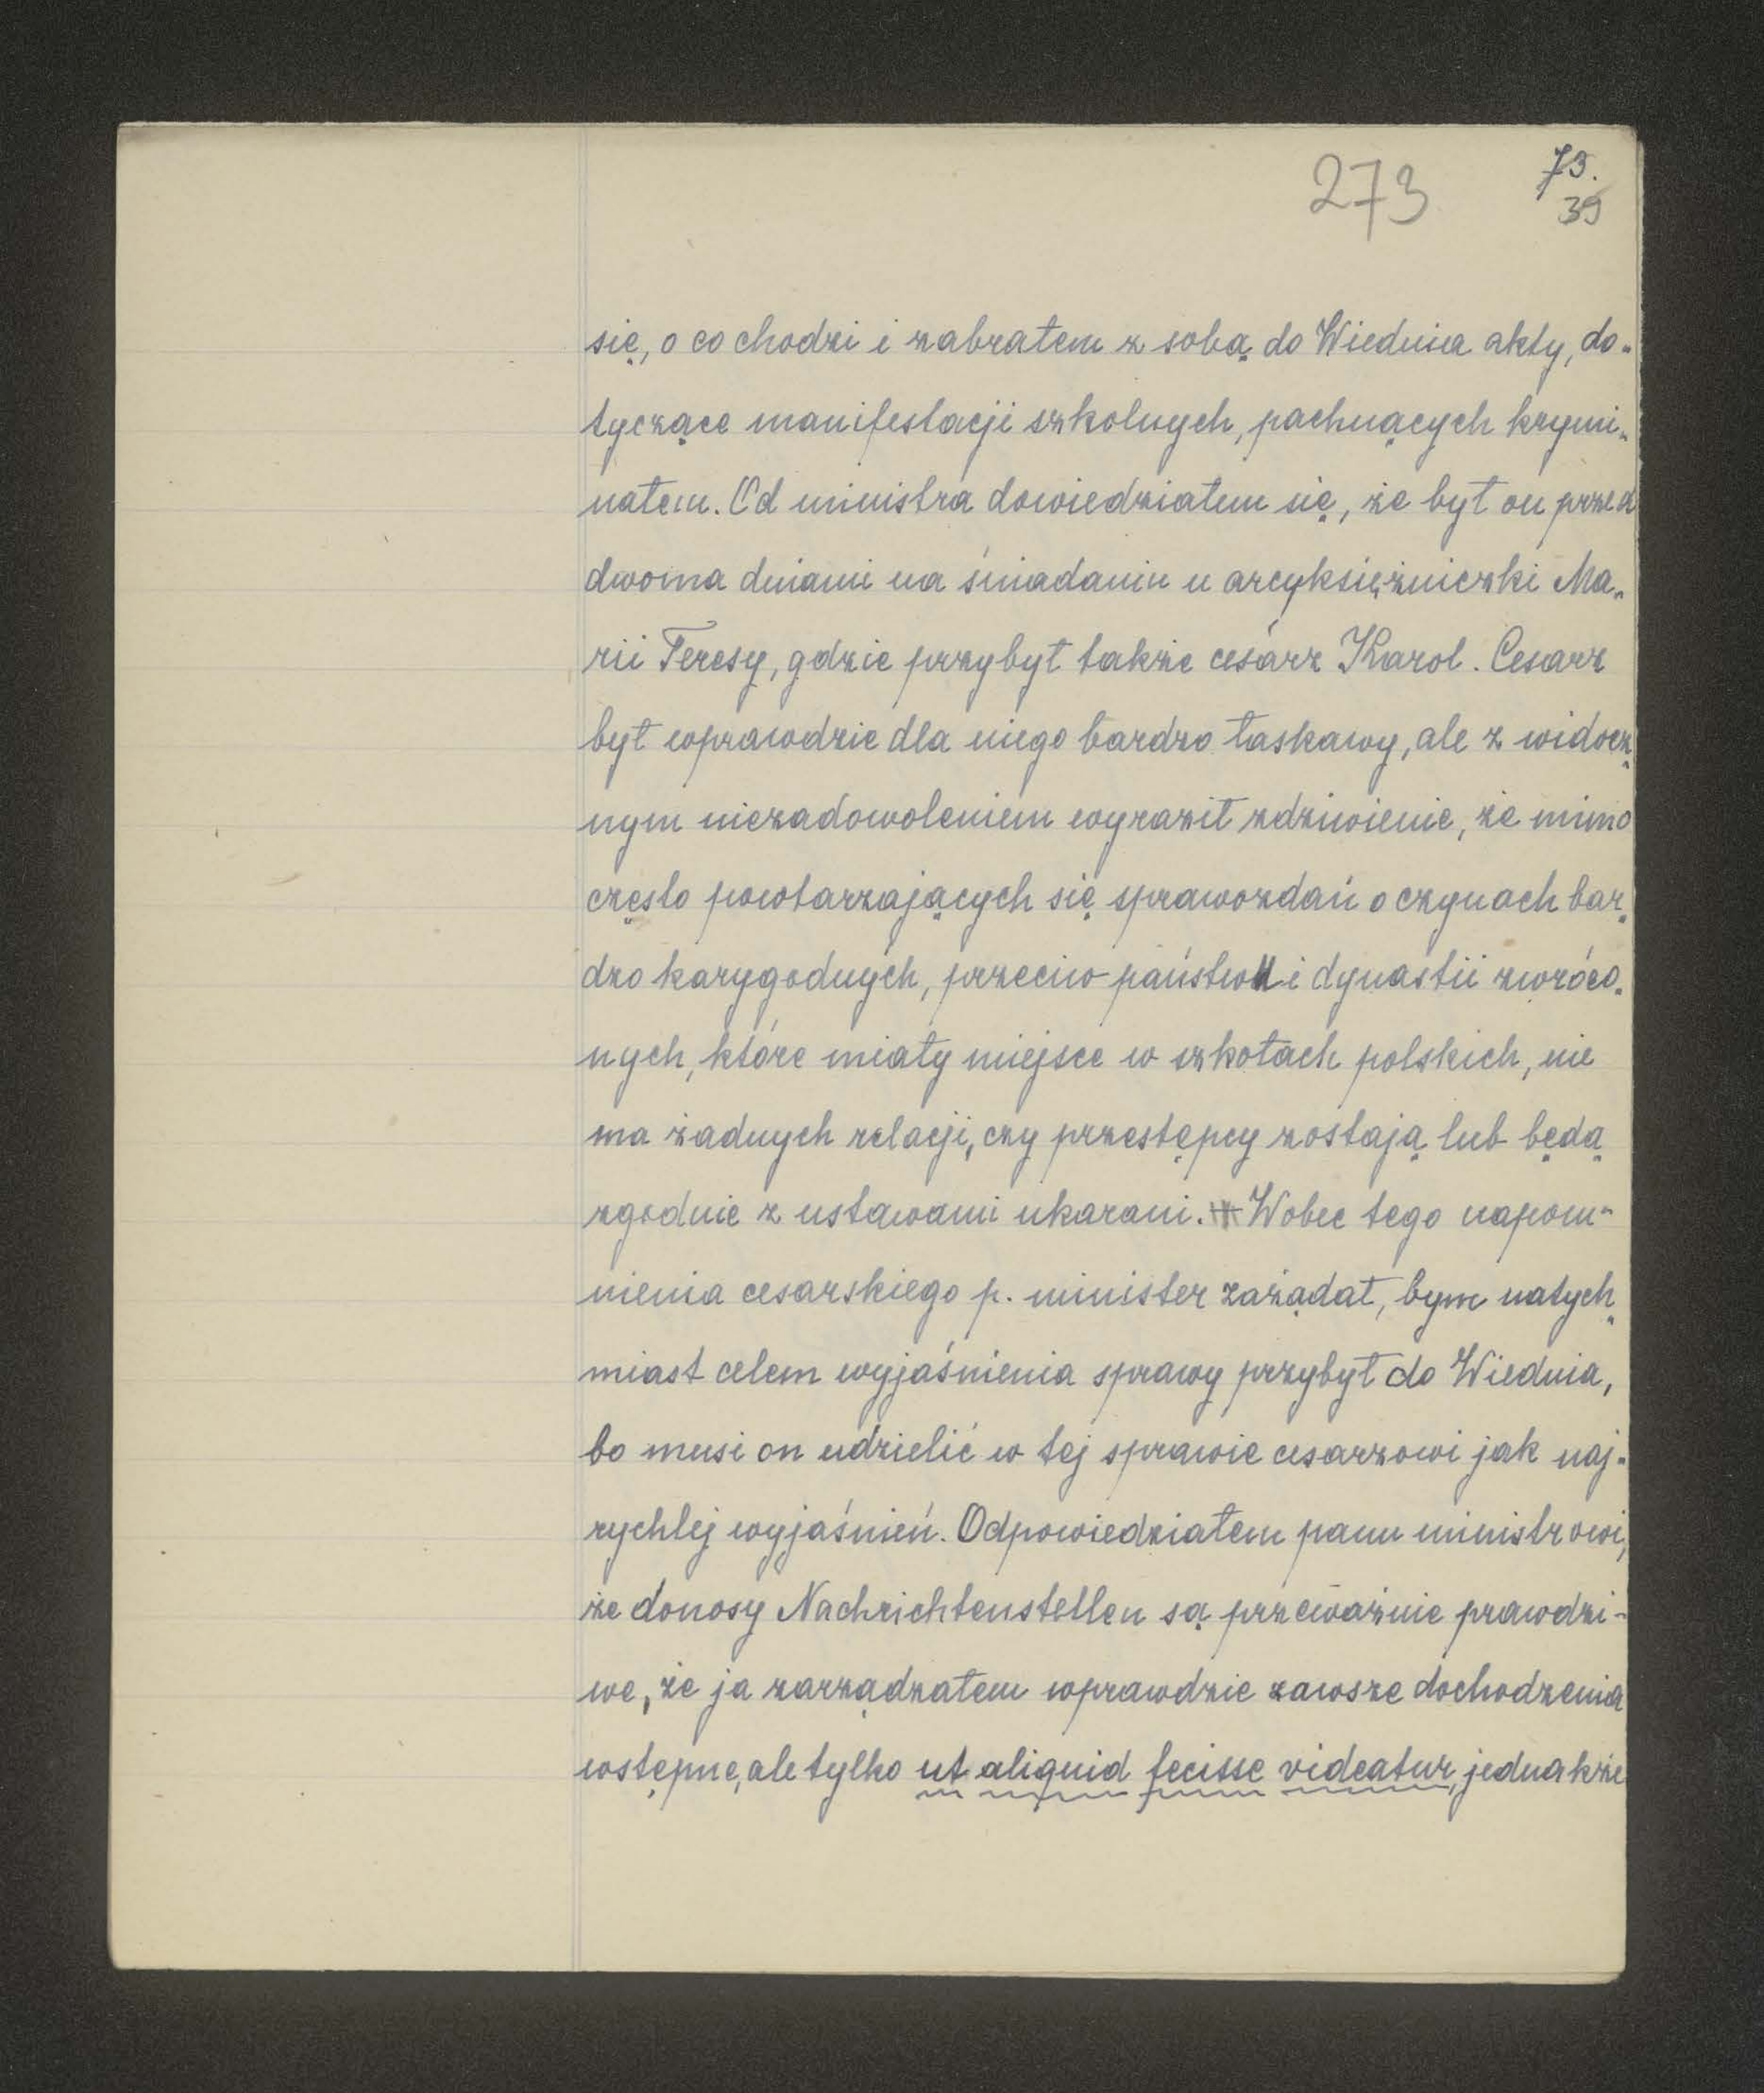 273
73.
39
się, o co chodzi i zabrałem z sobą do Wiednia akty, do-
tyczące manifestacji szkolnych, pachnących krymi-
nałem. Od ministra dowiedziałem się, że był on przed
dwoma dniami na śniadaniu u arcyksiężniczki Ma-
rii Teresy, gdzie przybył także cesarz Karol. Cesarz
był wprawdzie dla niego bardzo łaskawy, ale z widocz-
nym niezadowoleniem wyraził zdziwienie, że mimo
często powtarzających się sprawozdań o czynach bar-
dzo karygodnych, przeciw państwu i dynastii zwróco-
nych, które miały miejsce w szkołach polskich, nie
ma żadnych relacji, czy przestępcy zostają lub będą
zgodnie z ustawami ukarani. Wobec tego napom-
nienia cesarskiego p. minister zażądał, bym natych-
miast celem wyjaśnienia sprawy przybył do Wiednia,
bo musi on udzielić w tej sprawie cesarzowi jak naj-
rychlej wyjaśnień. Odpowiedziałem panu ministrowi,
że donosy Nachrichtenstellen są przeważnie prawdzi-
we, że ja zarządzałem wprawdzie zawsze dochodzenia
wstępne, ale tylko ut aliquid fecisse videatur, jednakże